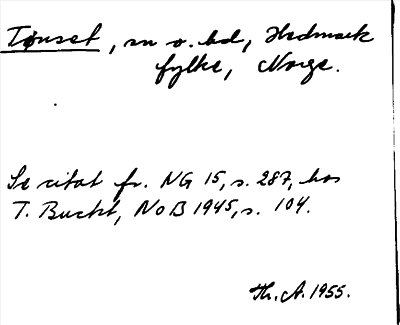 Tønset, sn o. hd, Hedmark
fylke, Norge.
Se citat fr. NG 15, s. 287, hos
T. Bucht, NoB 1945, s. 104.
Th. A. 1955.